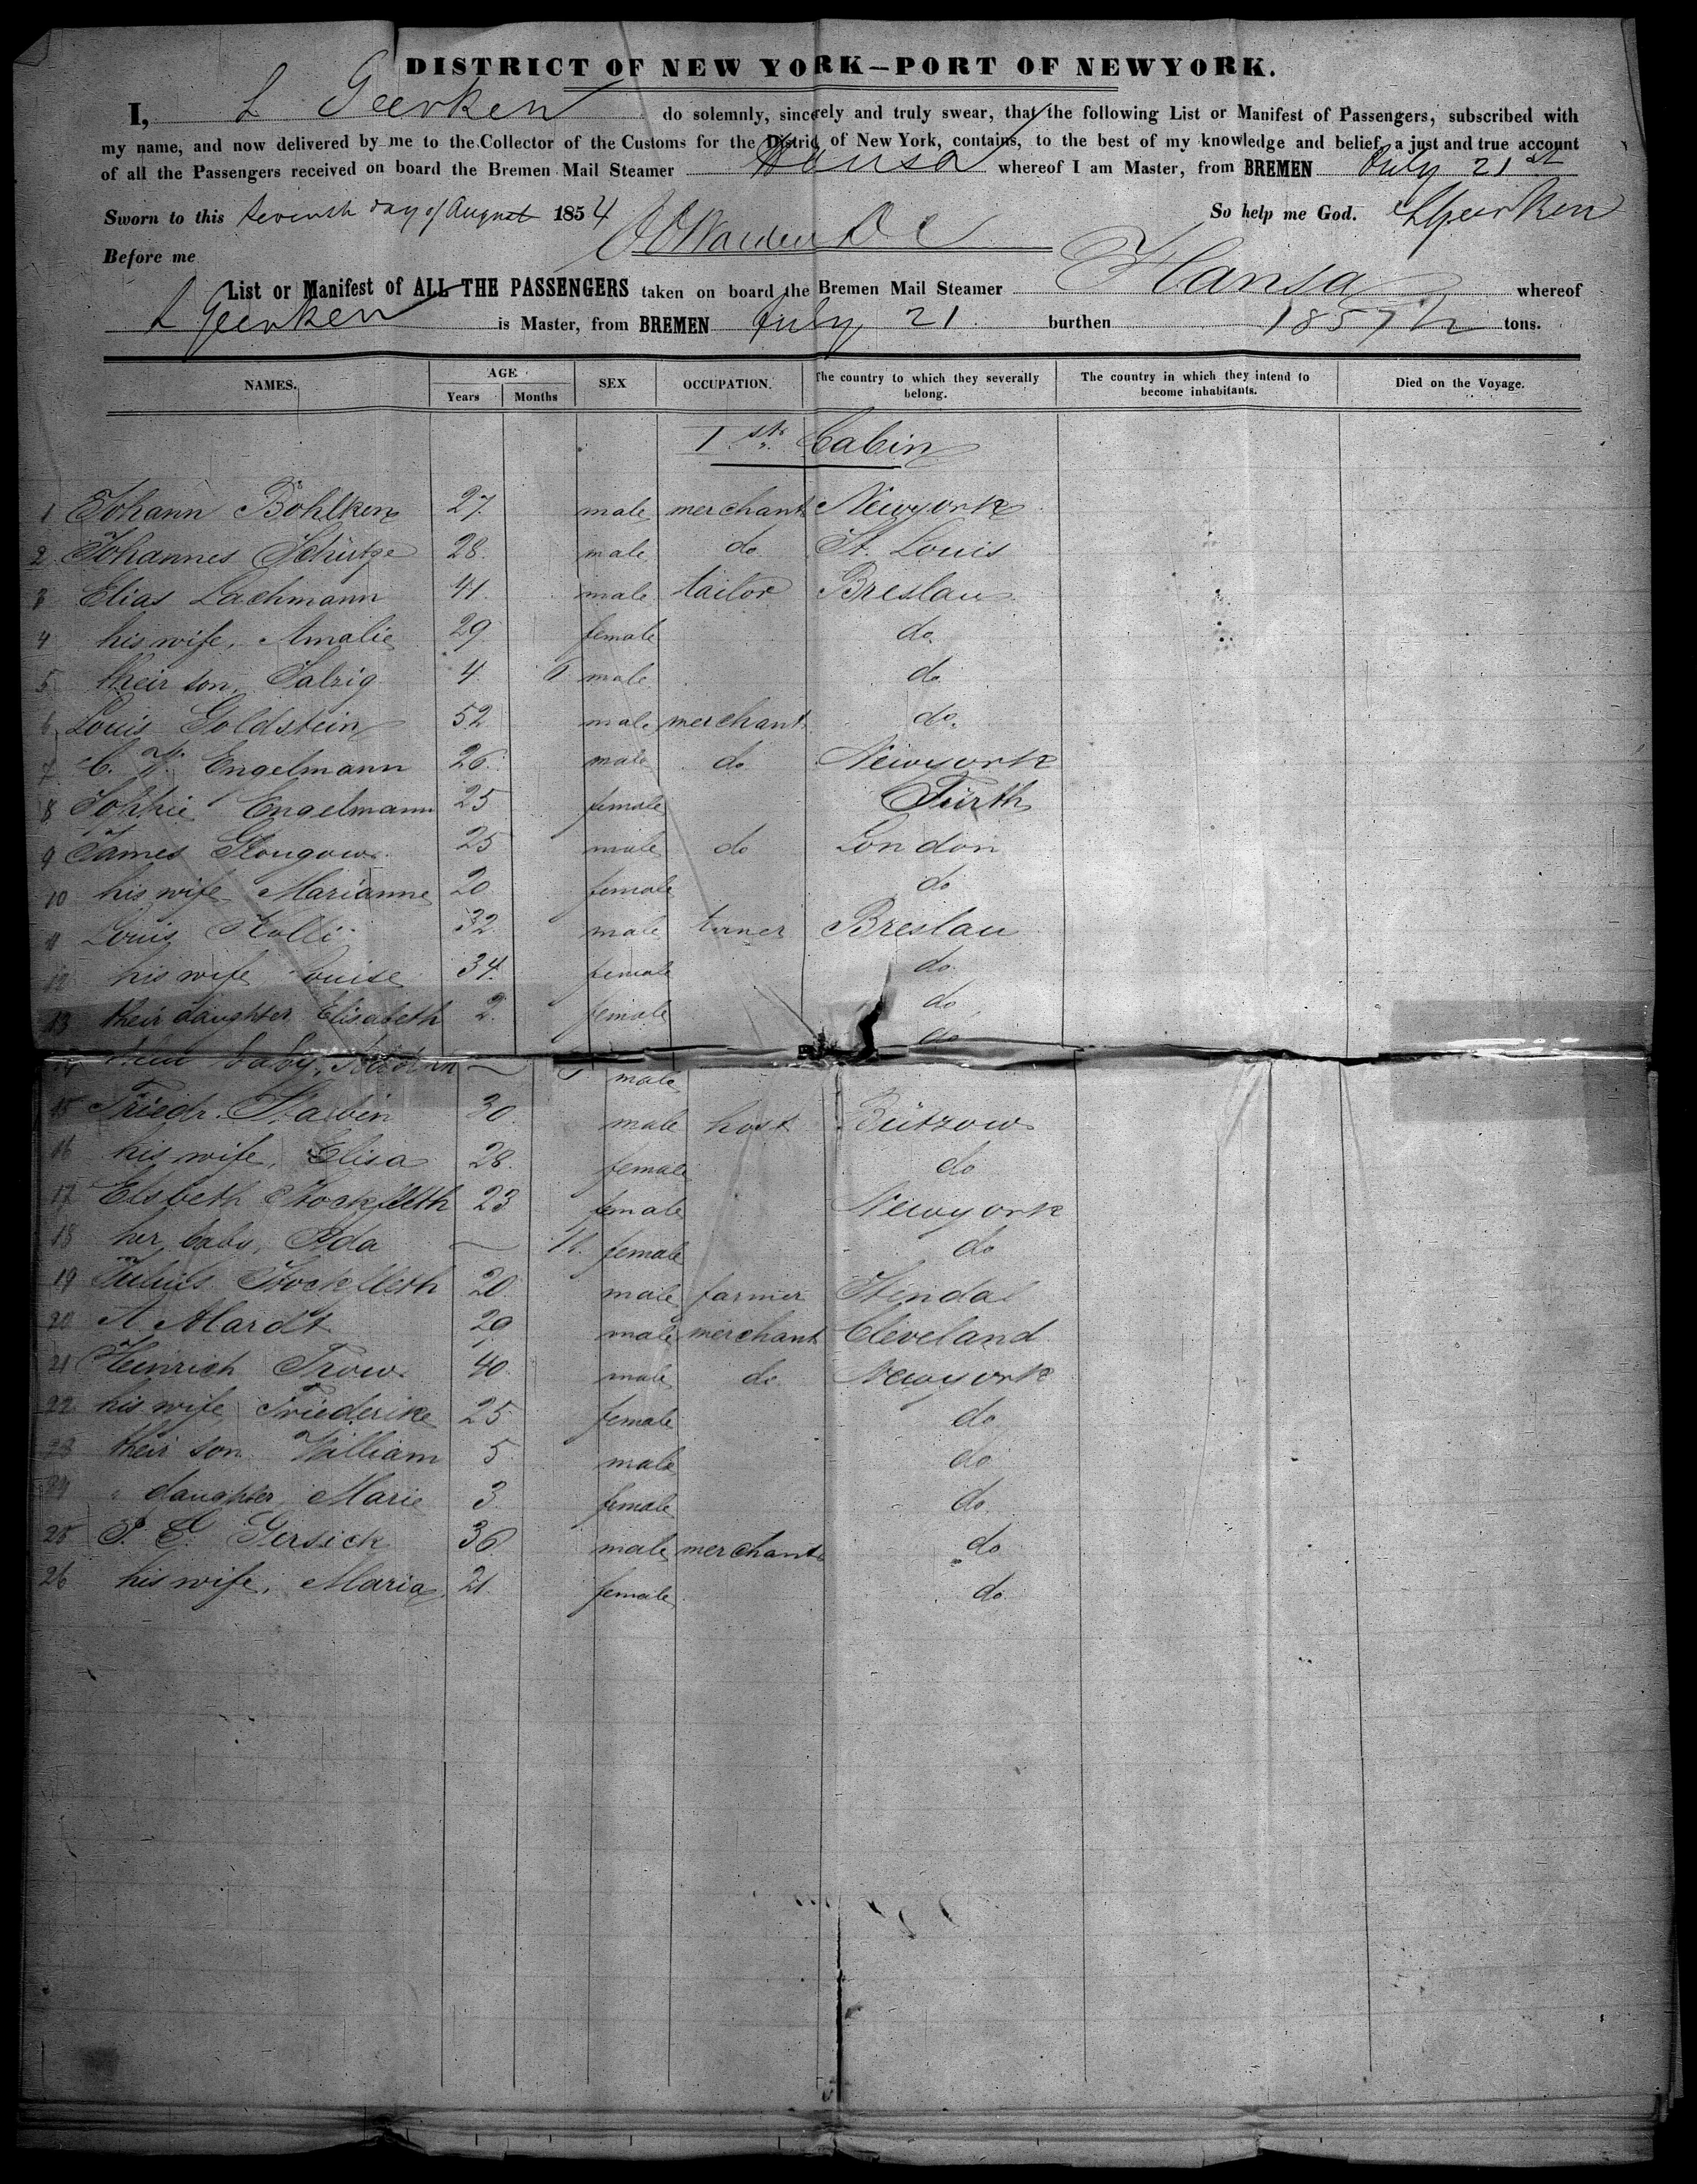 DISTRICT OF NEW YORK—PORT OF NEWYORK.
I, L Geerken do solemnly, sincerely and truly swear, that the following List or Manifest of Passengers, subscribed with
my name, and now delivered by me to the Collector of the Customs for the District of New York, contains, to the best of my knowledge and belief, a just and true account
of all the Passengers received on board the Bremen Mail Steamer Hansa whereof I am Master, from BREMEN July 21st
Sworn to this seventh day of August 1854 So help me God. LGeerken
Before me
List or Manifest of ALL THE PASSENGERS taken on board the Bremen Mail Steamer Hansa whereof
L Geerken is Master, from BREMEN July 21. burthen tons.
NAMES. AGE SEX OCCUPATION. The country to which they severally belong. The country in which they intend to become inhabitants. Died on the Voyage.
Years Months
1st Cabin
1 Johann Böhlken 27. male merchant Newyork
2 Johannes Schütze 28. male do. St. Louis
3 Elias Lachmann 41. male tailor Breslau
4 his wife, Amalie 29 female do.
5 their son, 4. male do.
6 Louis Goldstein 52 male merchant do.
7 C. Engelmann 26. male do Newyork
8 Sophie Engelmann 25 female Fürth
9 James 25 male do London
10 his wife Marianne 20 female do
11 Louis 32 male turner Breslau
12 his wife Louise 34. female do.
13 their daughter Elisabeth 2. female do
14 their baby, male do
15 Friedr. 30. male host Bützow
16 his wife, Elisa 28. female do
17 Elsbeth Stockfleth 23 female Newyork
18 her baby, Ada 11. female do
19 Julius Stockfleth 20. male farmer Stendal
20 A. Mardt 29 male merchant Cleveland
21 Heinrich Trow 40. male do. Newyork
22 his wife Friederike 25 female do
23 their son William 5 male do
24 " daughter Marie 3. female do.
25 Gersick 36. male merchant do
26 his wife, Maria 21. female do.